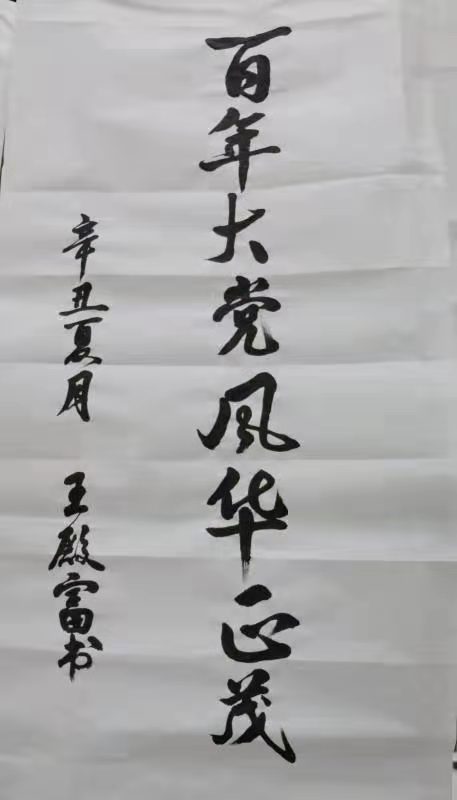 百年大党风华正茂
辛丑夏月 王殿富书